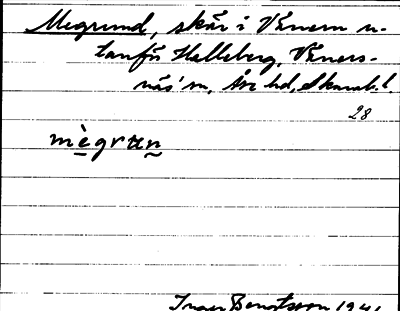 Megrund, skär i Vänern u-
tanför Halleberg, Väners-
näs' sn, Åse hd, Skarab. l.
28
mègrưn
Inger Bengtsson 1941